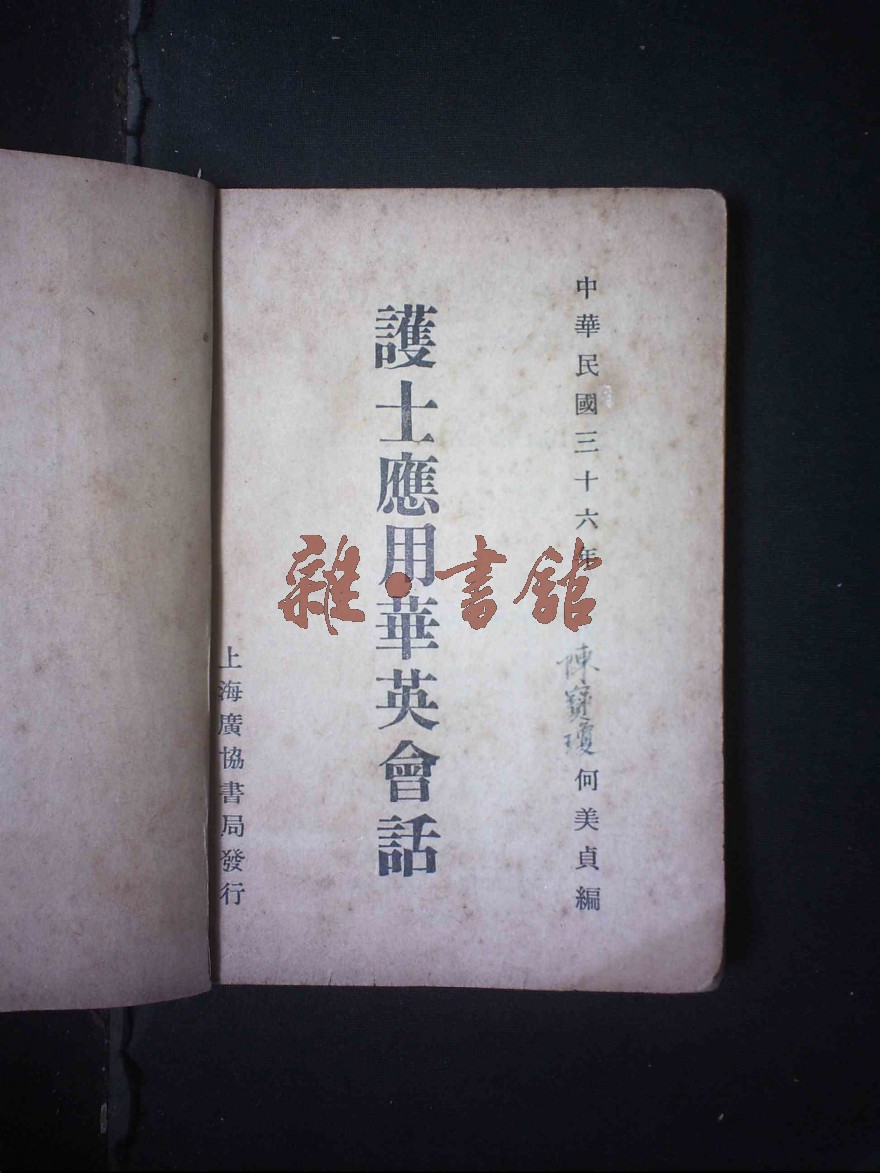 中華民國三十六年
陳寶瓊
何美貞編
護士應用華英會話
上海廣協書局發行
雜·書館